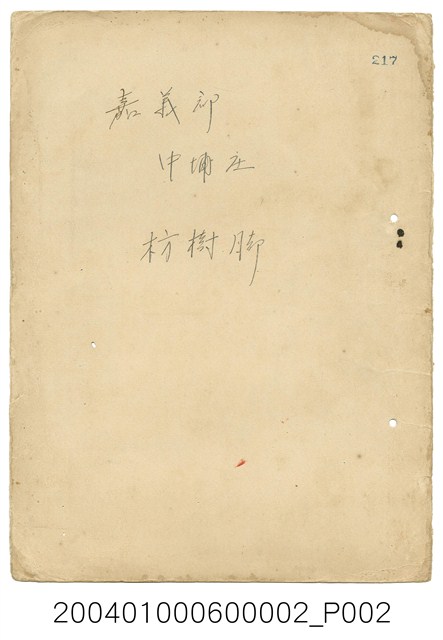 217
嘉義郡
中埔庄
枋樹脚
200401000600002_P002